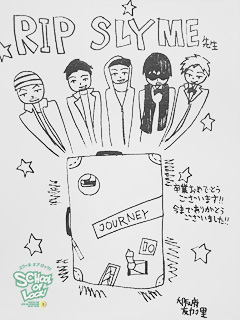 RIP SLYME 先生
卒業おめでとう
ございます!!
今までありがとう
ございました!!
JOURNEY
10
SCHOOL
OF
LOCK!
大阪府